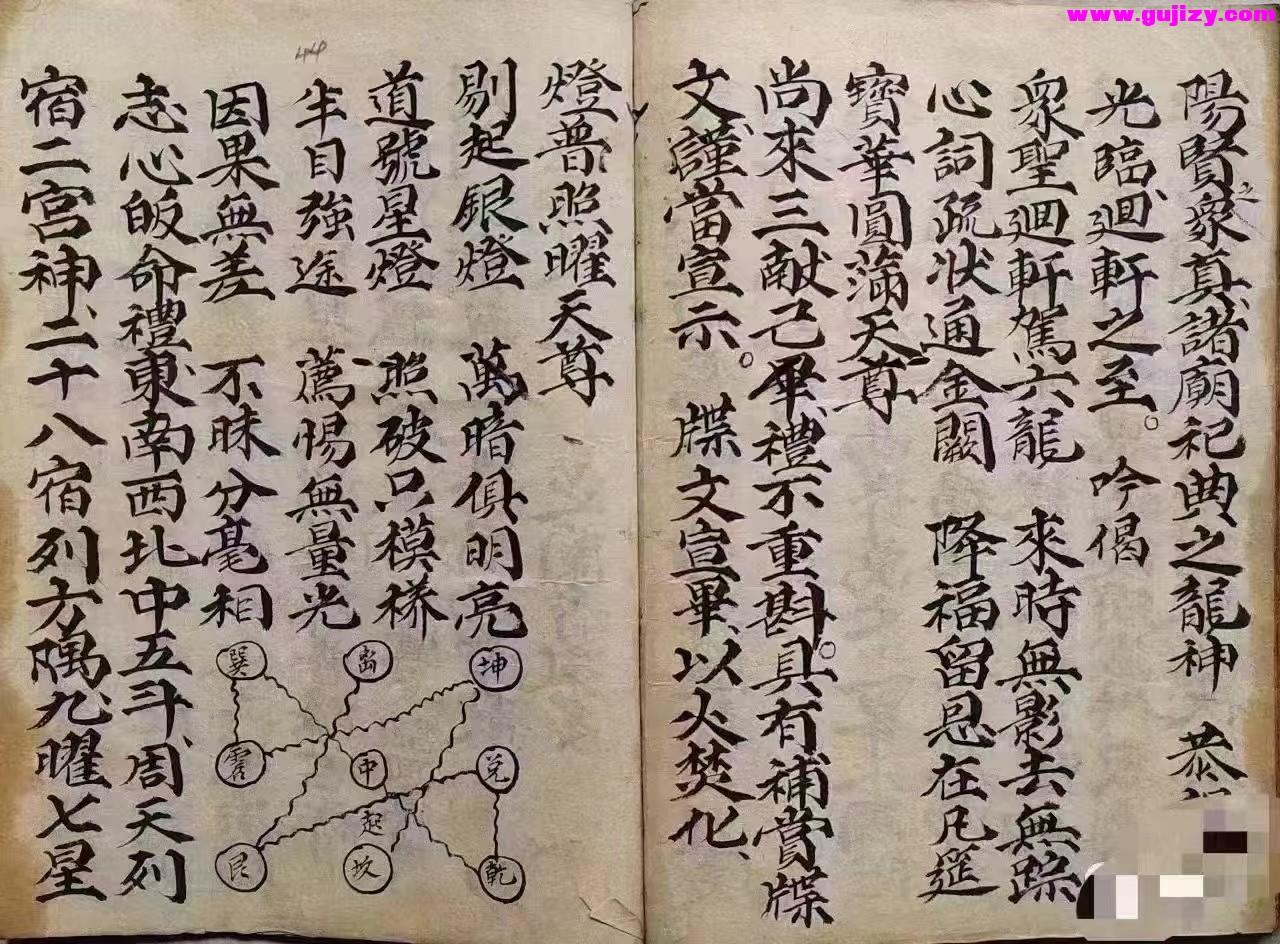 www.gujizy.com
陽賢衆真諸廟祀典之龍神 恭
之
光臨廻軒之至。 吟偈
衆聖廻軒駕六龍 來時無影去無踪
心詞疏状通金闕 降福留恩在凡筵
寳華圓滿天尊
尚來三献己畢禮不重斟。具有補嘗牒
文謹當宣示。 牒文宣畢以火焚化、
44
燈普照曜天尊
剔起銀燈 萬暗俱明亮
道號星燈 照破只模樣
半目強途 薦惕無量光
因果無差 不昧分毫相
志心皈命禮東南西北中五斗周天列
宿二宫神、二十八宿列方隅九曜七星
巽 离 坤
震 中 兑
起
艮 坎 乾